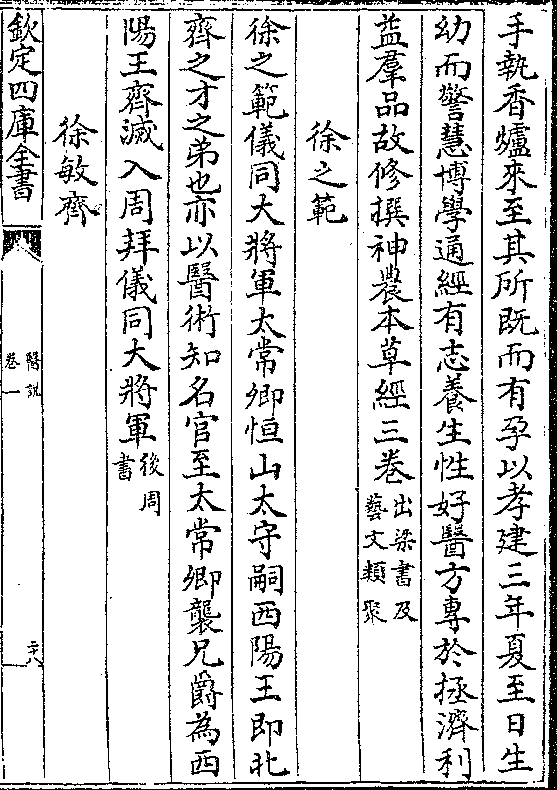 手執香爐來至其所既而有孕以孝建三年夏至日生
幼而警慧博學通經有志養生性好醫方專於拯濟利
益羣品故修撰神農本草經三卷出梁書及藝文類聚
徐之範
徐之範儀同大將軍太常卿恒山太守嗣西陽王即北
齊之才之弟也亦以醫術知名官至太常卿襲兄爵為西
陽王齊滅入周拜儀同大將軍後周書
徐敏齊
欽定四庫全書
醫說
卷一
二十八